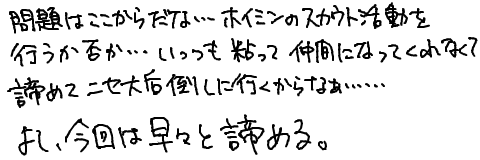 問題はここからだな… ホイミンのスカウト活動を
行うか否か… いっつも粘って仲間になってくれなくて
諦めてニセ大后倒しに行くからなぁ……
よし、今回は早々と諦める。